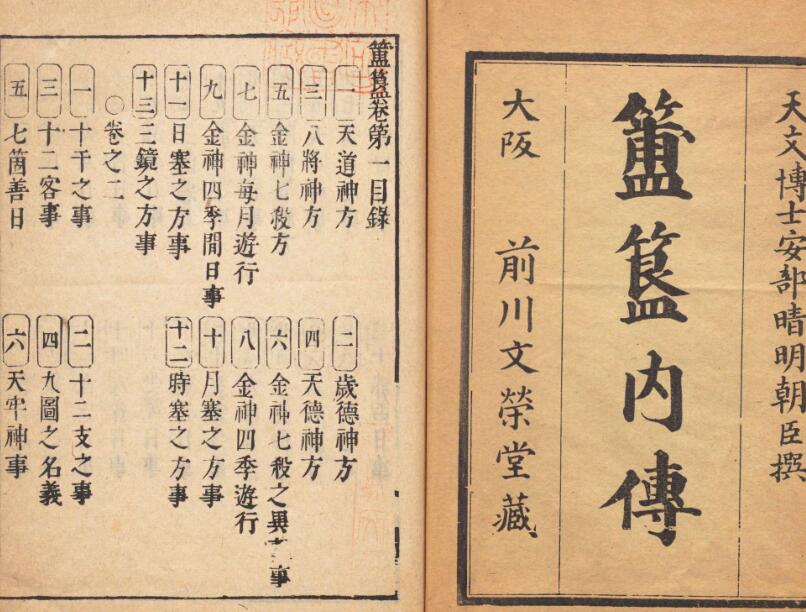 天文博士安部晴明朝臣撰
簠簋内傳
大阪　前川文榮堂藏
簠簋卷第一目錄
一　天道神方
二　歳德神方
三　八將神方
四　天德神方
五　金神七殺方
六　金神七殺之異事
七　金神每月遊行
八　金神四季遊行
九　金神四季間日事
十　月塞之方事
十一　日塞之方事
十二　時塞之方事
十三　三鏡之方事
〇卷之二
一　十干之事
二　十二支之事
三　十二客事
四　九圖之名義
五　七箇善日
六　天牢神事